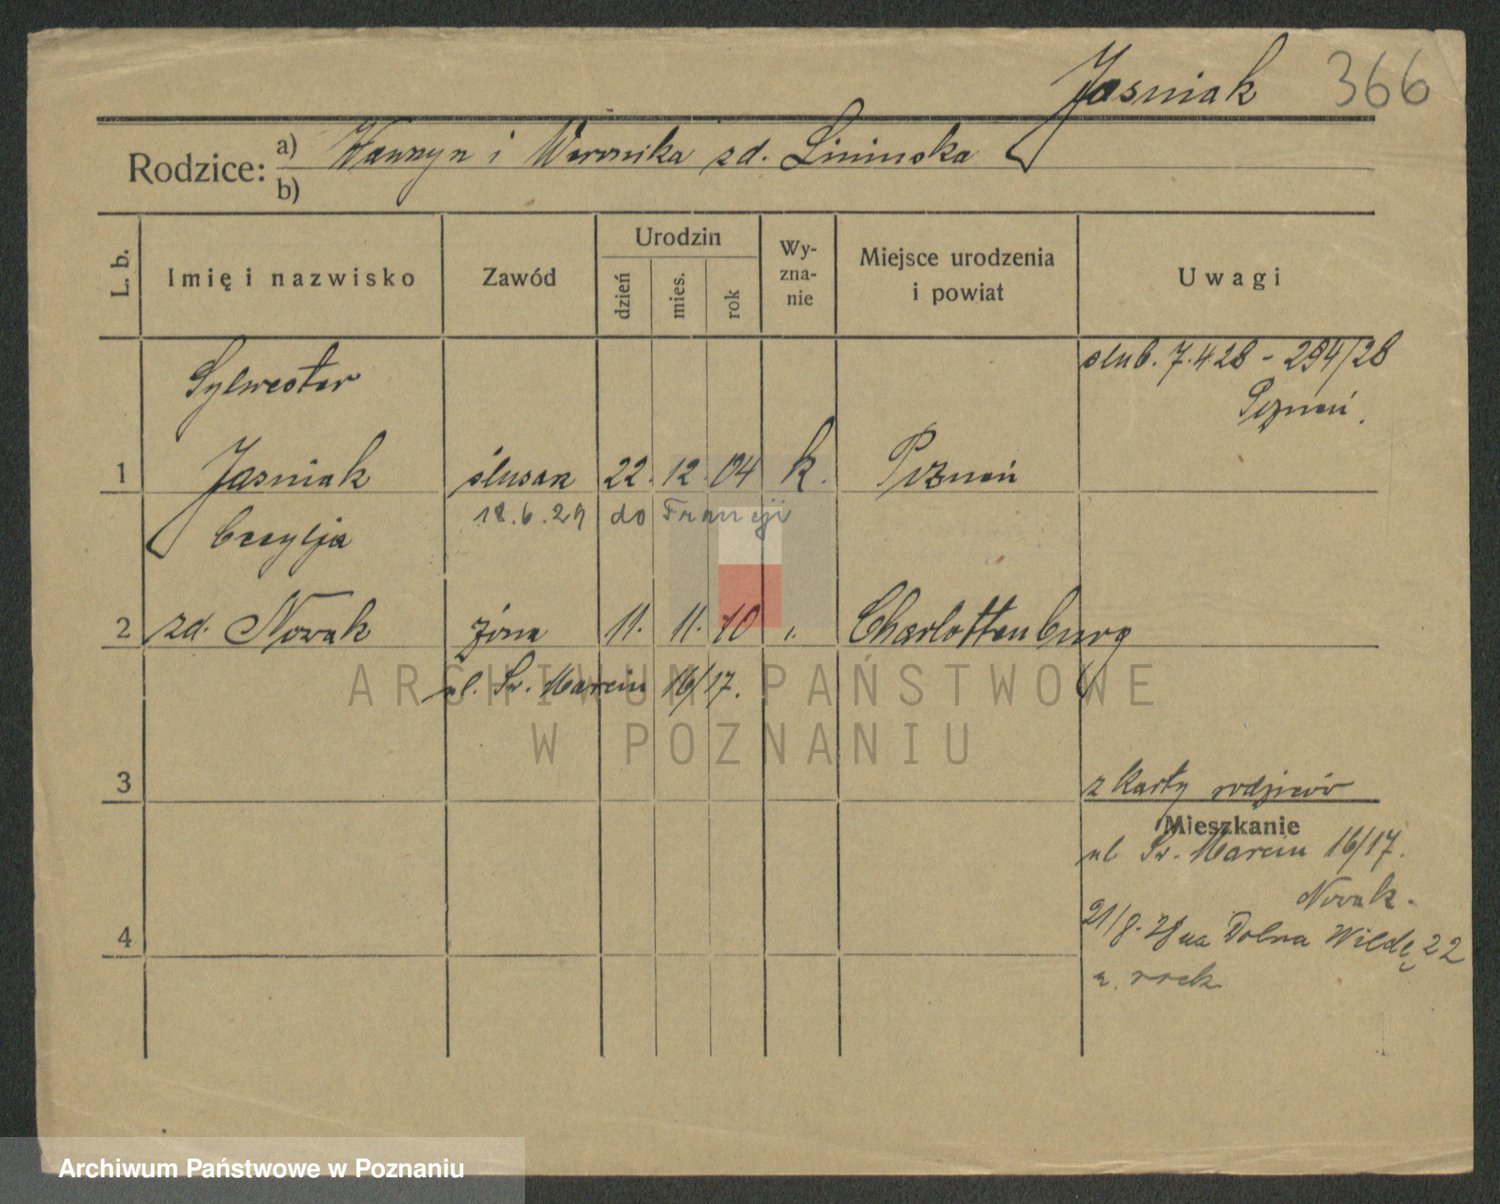 Jasniak 366
Rodzice: a) Wawrzyn i Weronika zd.
b)
L. b. Imię i nazwisko Zawód Urodzin dzień mies. rok Wy-zna-nie Miejsce urodzenia i powiat Uwagi
Sylwester ślub. 7.4 28 - 294/28
Poznań.
1 Jasniak ślusarz 22. 12. 04 k. Poznań
18.6.29 do Francji
Cecylja
2 zd. Nowak żona 11. 11. 10 ". Charlottenburg
ul. Św. Marcin 16/17.
ARCHIWUM PAŃSTWOWE
W POZNANIU
3 z karty rodziców
Mieszkanie
ul Św. Marcin 16/17.
Nowak.
21/8. 28 na Dolna Wildę 22
4
Archiwum Państwowe w Poznaniu